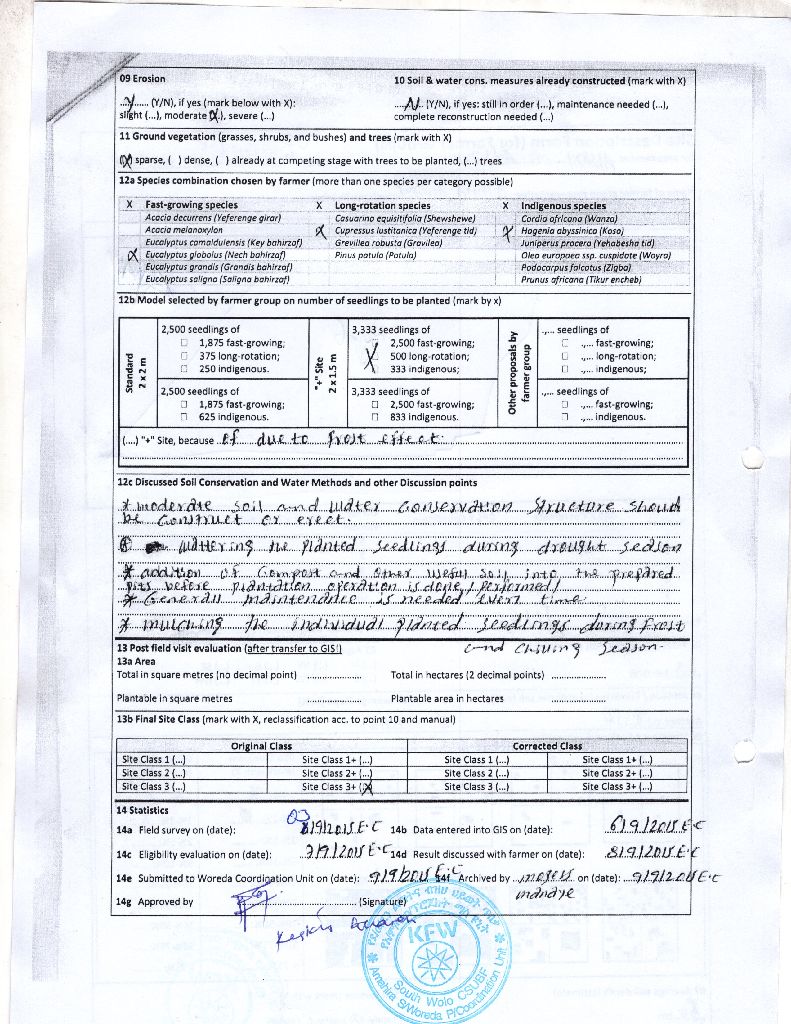 09 Erosion
10 Soil & water cons. measures already constructed (mark with X)
...Y...... (Y/N), if yes (mark below with X):
....N. (Y/N), if yes: still in order (...), maintenance needed (...),
slight (...), moderate (X.), severe (...)
complete reconstruction needed (...)
11 Ground vegetation (grasses, shrubs, and bushes) and trees (mark with X)
(X) sparse, ( ) dense, ( ) already at competing stage with trees to be planted, (...) trees
12a Species combination chosen by farmer (more than one species per category possible)
X Fast-growing species X Long-rotation species X Indigenous species
Acacia decurrens (Yeferenge girar) Casuarina equisitifolia (Shewshewe) Cordia africana (Wanza)
Acacia melanoxylon X Cupressus lustitanica (Yeferenge tid) X Hagenia abyssinica (Koso)
Eucalyptus camaldulensis (Key bahirzaf) Grevillea robusta (Gravilea) Juniperus procera (Yehabesha tid)
X Eucalyptus globolus (Nech bahirzaf) Pinus patula (Patula) Olea europaea ssp. cuspidate (Wayra)
Eucalyptus grandis (Grandis bahirzaf) Podocarpus falcatus (Zigba)
Eucalyptus saligna (Saligna bahirzaf) Prunus africana (Tikur encheb)
12b Model selected by farmer group on number of seedlings to be planted (mark by x)
Standard
2 x 2 m
2,500 seedlings of
☐ 1,875 fast-growing;
☐ 375 long-rotation;
☐ 250 indigenous.
2,500 seedlings of
☐ 1,875 fast-growing;
☐ 625 indigenous.
"+" Site
2 x 1.5 m
3,333 seedlings of
X 2,500 fast-growing;
500 long-rotation;
333 indigenous;
3,333 seedlings of
☐ 2,500 fast-growing;
☐ 833 indigenous.
Other proposals by
farmer group
.,... seedlings of
☐ .,... fast-growing;
☐ .,... long-rotation;
☐ .,... indigenous;
.,... seedlings of
☐ .,... fast-growing;
☐ .,... indigenous.
(....) "+" Site, because of due to frost effect.
12c Discussed Soil Conservation and Water Methods and other Discussion points
* moderate soil and water conservation structure should
be construct or erect.
wattering the planted seedlings during drought season
* addition of compost and other useful soil into the prepared
pits before plantation operation is done/performed/
* Generall maintenance is needed every time
* mulching the individual planted seedlings during frost
and chilling season.
13 Post field visit evaluation (after transfer to GIS!)
13a Area
Total in square metres (no decimal point) .................... Total in hectares (2 decimal points) ....................
Plantable in square metres .................... Plantable area in hectares ....................
13b Final Site Class (mark with X, reclassification acc. to point 10 and manual)
Original Class Corrected Class
Site Class 1 (...) Site Class 1+ (...) Site Class 1 (...) Site Class 1+ (...)
Site Class 2 (...) Site Class 2+ (...) Site Class 2 (...) Site Class 2+ (...)
Site Class 3 (...) Site Class 3+ (X) Site Class 3 (...) Site Class 3+ (...)
14 Statistics
14a Field survey on (date): 03/9/2015 E.C 14b Data entered into GIS on (date): 6/9/2015 E.C
14c Eligibility evaluation on (date): 7/9/2015 E.C 14d Result discussed with farmer on (date): 8/9/2015 E.C
14e Submitted to Woreda Coordination Unit on (date): 9/9/2015 E.C 14f Archived by on (date): 9/9/2015 E.C
14g Approved by (Signature)
KFW
South Wolo CSUBF
Amahira S/Woreda P/Coordination Unit